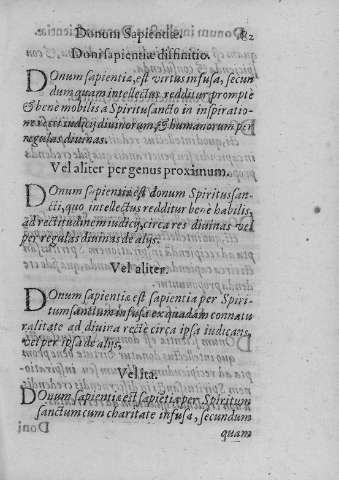 Donum Sapientiæ. 82
Doni sapientiæ diffinitio.
Donum sapientiæ, est virtus infusa, secun
dum quam intellectus redditur prompte
& bene mobilis, a Spiritusancto in inspiratio-
ne recti iudicij divinorum, & humanorum per
regulas divinas.
Vel aliter per genus proximum.
Donum sapientiæ est donum Spiritussan-
cti, quo intellectus redditur bene habilis,
ad rectitudinem iudicij, circa res divinas vel
per regulas divinas de alijs.
Vel aliter.
Donum sapientiæ est sapientia per Spiri-
tumsanctum infusa ex quadam connatu
ralitate ad divina recte circa ipsa iudicans,
vel per ipsa de alijs,
Vel ita.
Donum sapientiæ est sapiētia per Spiritum
sanctum cum charitate infusa, secundum
Doni quam